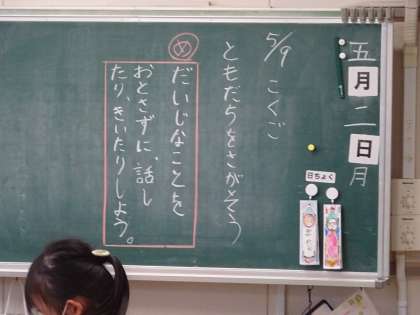 五月二日月
5/9 こくご
ともだちをさがそう
め
だいじなことを
おとさずに、話し
たり、きいたりしよう。
日ちょく